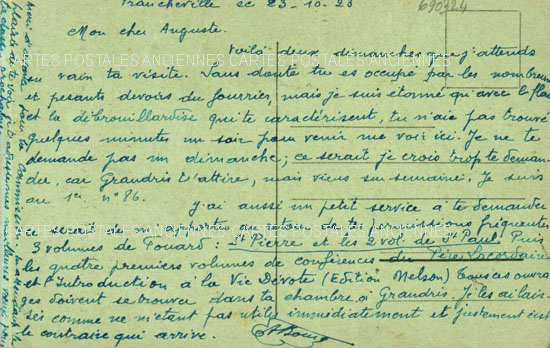 Francheville le 23-10-23
690324
Mon cher Auguste.
Voilà deux dimanches que j'attends
en vain ta visite. Sans doute tu es occupé par les nombreux
et pesants devoirs du fourrier, mais je suis étonné qu'avec le flair
et la débrouillardise qui te caractérisent, tu n'aie pas trouvé
quelques minutes un soir pour venir me voir ici. Je ne te
demande pas un dimanche; ce serait je crois trop te deman-
der, car Grandris t'attire, mais viens en semaine. Je suis
au 1er n° 86.
J'ai aussi un petit service à te demander
ce serait de m'apporter au retour de tes permissions fréquentes
3 volumes de Fouard: St Pierre et les 2 vol. de St Paul. Puis
les quatre premiers volumes de conférences du Père Lacordaire
et l'Introduction à la Vie Dévote (Edition Nelson) Tous ces ouvra-
ges doivent se trouver dans ta chambre à Grandris. Je les ai lais-
sés comme ne m'étant pas utile immédiatement et justement c'est
le contraire qui arrive.
CARTES POSTALES ANCIENNES CARTES POSTALES ANCIENNES CARTES POSTALES ANCIENNES